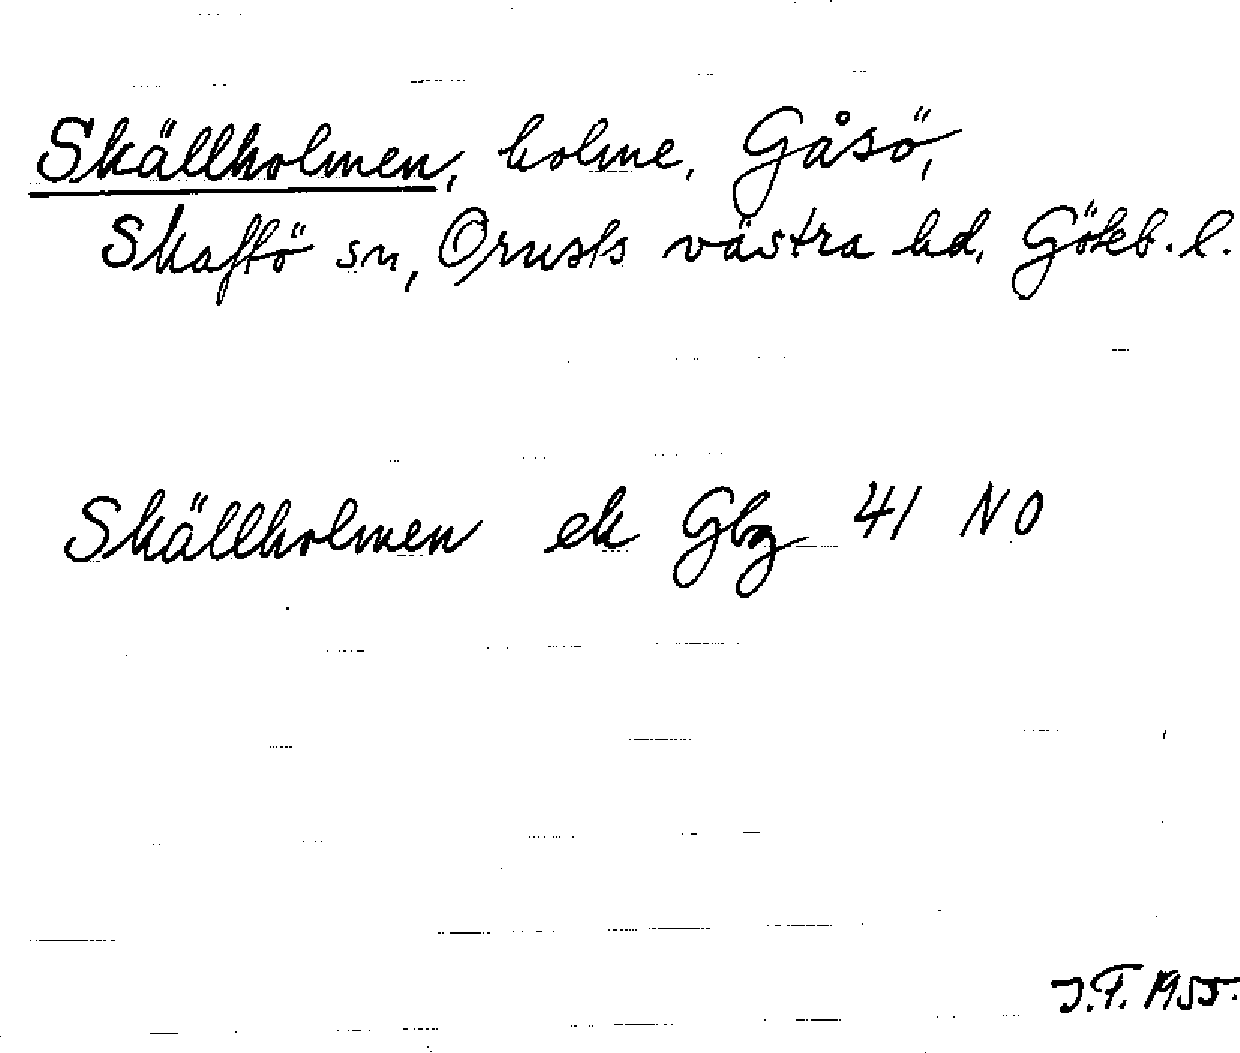 Skällholmen, holme, Gåsö,
Skaftö sn, Orusts västra hd, Göteb. l.
Skällholmen ek Gbg 41 NO
J.F. 1955.